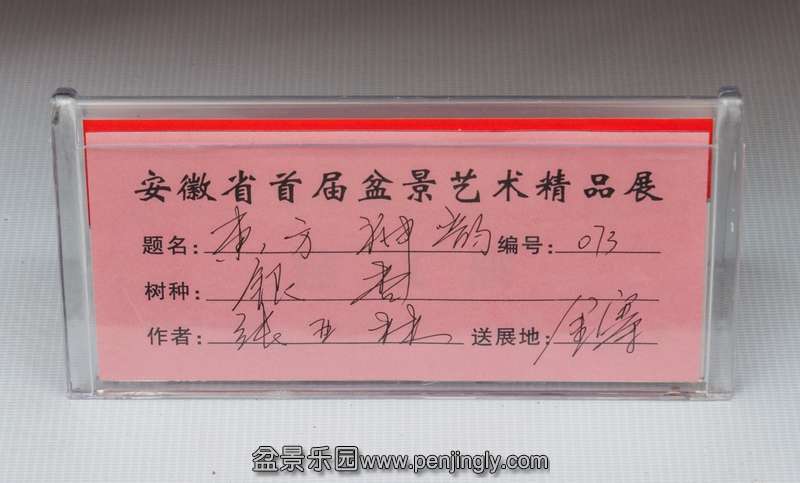 安徽省首届盆景艺术精品展
题名: 东方神韵 编号: 073
树种: 银杏
作者: 张 林 送展地: 金寨
盆景乐园www.penjingly.com